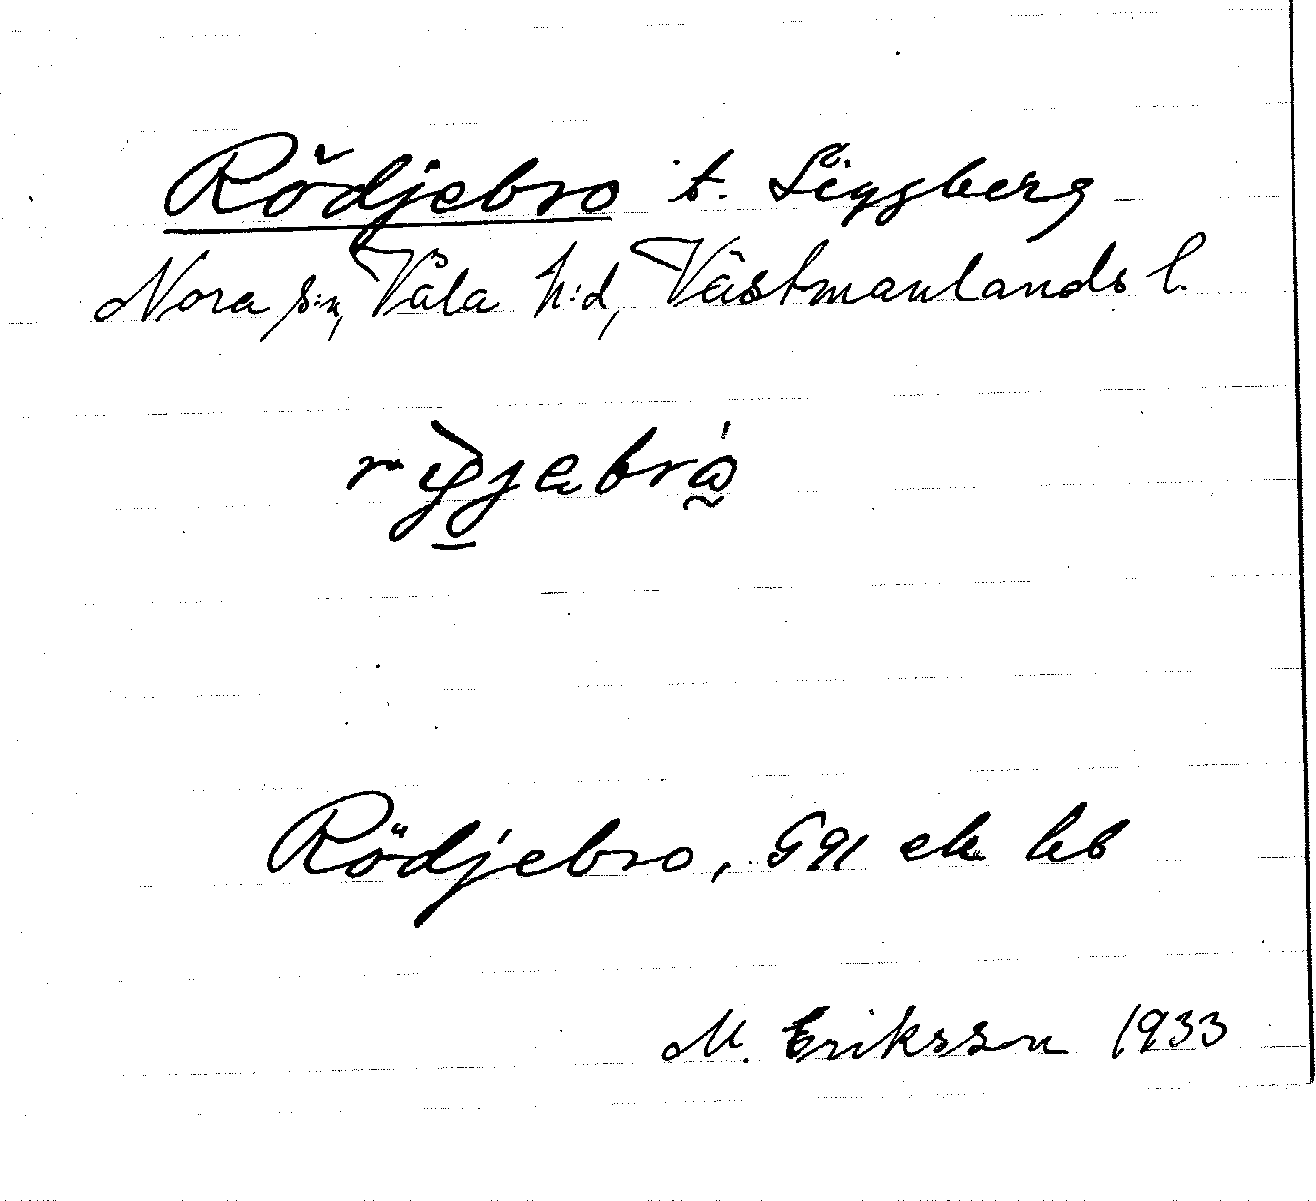 Rödjebro t. Siggberg
Nora s:n, Våla h:d, Västmanlands l.
Rödjebro, G 91 ek kb
M. Eriksson 1933